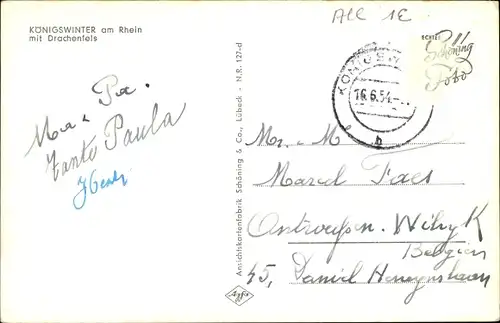 All 1E
KÖNIGSWINTER am Rhein
mit Drachenfels
ECHTES
Schöning
Foto
KÖNIGSW
16.6.54.
b
Ma - Pa.
Tante Paula
Ansichtskartenfabrik Schöning & Co., Lübeck - N.R. 127-d
Mr. M
Marcel Faes
Antwerpen. Wilryk
Belgien
45, Daniel
Agfa